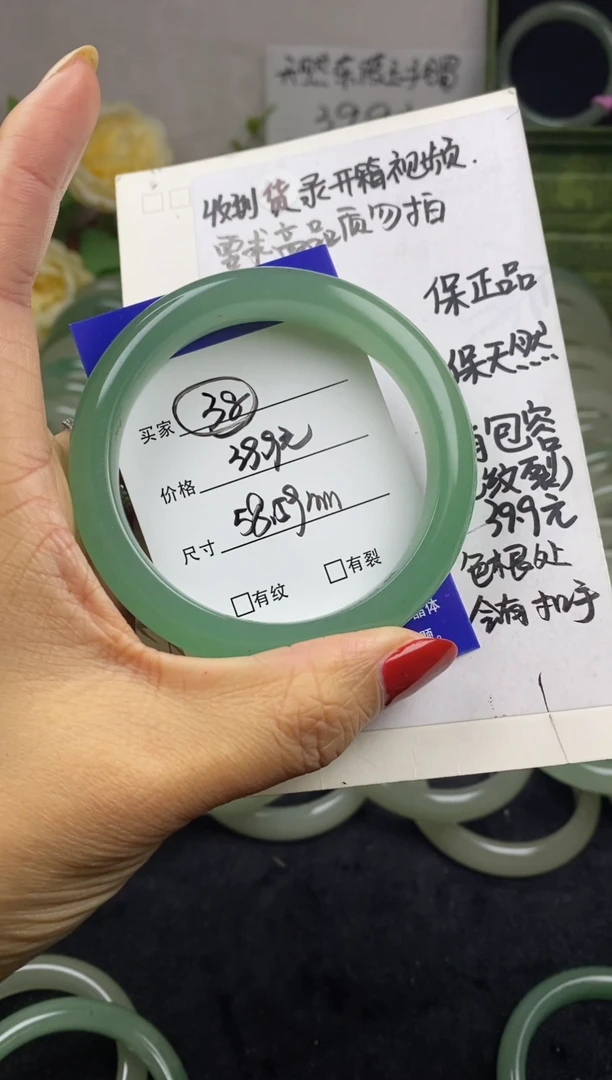 天然东陵玉手镯
399元
收到货录开箱视频.
要求高品质勿拍
保正品
保天然
包容
纹裂)
39.9元
色根处
会有扣手
买家 38
价格 399元
尺寸 58.59mm
□有纹 □有裂
晶体
题。